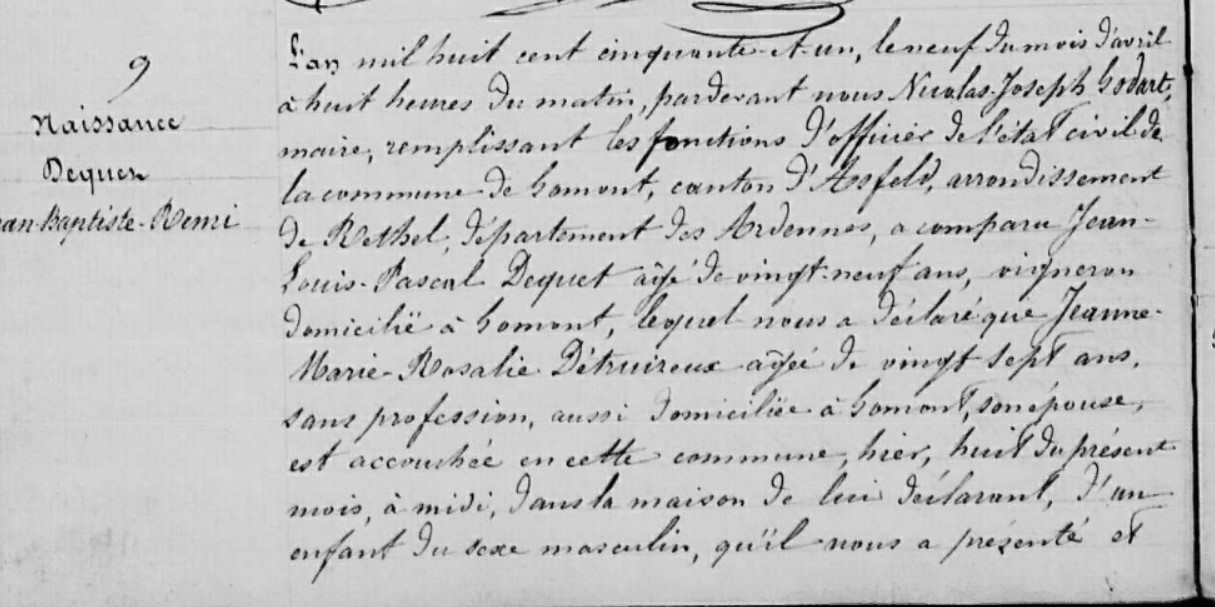 9
Naissance
Dequet
ean-Baptiste-Remi
L'an mil huit cent cinquante-et-un, le neuf du mois d'avril
à huit heures du matin, pardevant nous Nicolas-Joseph Godart,
maire, remplissant les fonctions d'officier de l'état civil de
la commune de Gomont, canton d'Asfeld, arrondissement
de Rethel, département des Ardennes, a comparu Jean-
Louis-Pascal Dequet âgé de vingt-neuf ans, vigneron
domicilié à Gomont, lequel nous a déclaré que Jeanne-
Marie-Rosalie Détruiseux âgée de vingt sept ans,
sans profession, aussi domiciliée à Gomont, son épouse,
est accouchée en cette commune, hier, huit du présent
mois, à midi, dans la maison de lui déclarant, d'un
enfant du sexe masculin, qu'il nous a présenté et